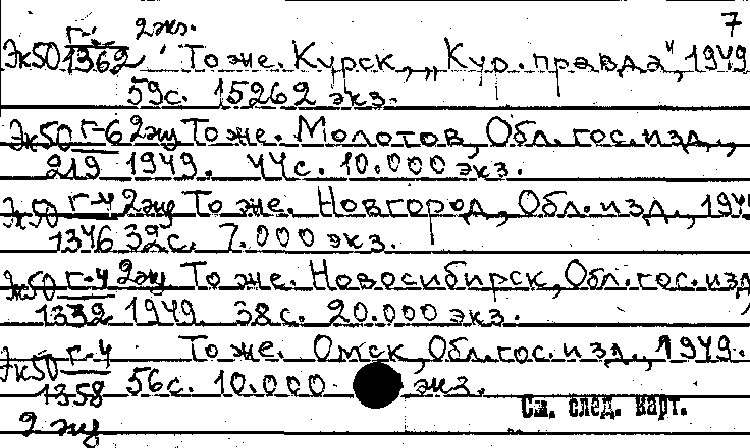 7
2 экз.
Эк50 Г-4/1362 То же. Курск, „Кур. правда", 1949
59с. 15262 экз.
Эк50 Г-6/219 2 экз То же. Молотов, Обл. гос. изд.,
1949. 44с. 10.000 экз.
Эк50 Г-4/1346 2 экз То же. Новгород, Обл. изд., 194
32с. 7.000 экз.
Эк50 Г-4/1332 2 экз То же. Новосибирск, Обл. гос. изд
1949. 38с. 20.000 экз.
Эк50 Г-4/1358 То же. Омск, Обл. гос. изд., 1949.
56с. 10.000 экз.
См. след. карт.
2 экз